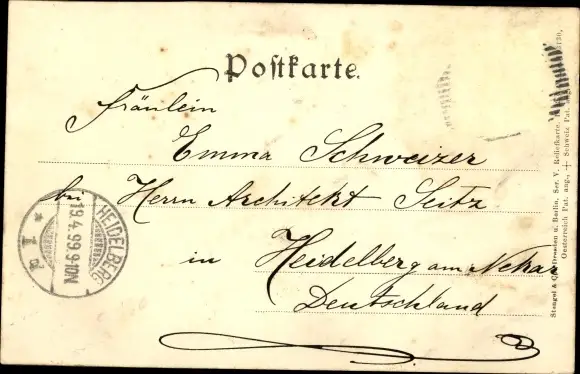 Postkarte.
Fräulein
Emma Schweizer
bei Herrn Architekt Seitz
in Heidelberg am Nekar
Deutschland
HEIDELBERG
19.4.99.9-10N
* 1
Dresden u. Berlin, Ser. V. Reliefkarte.
Oesterreich Pat. ang., + Schweiz Pat.